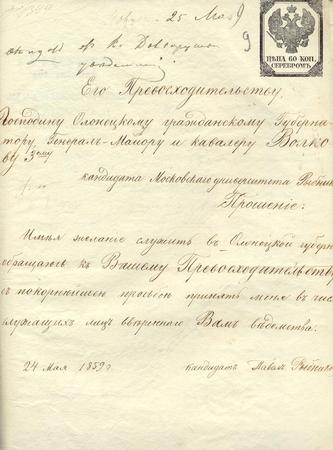 25 Мая
9
ЦѢНА 60 КОП.
СЕРЕБРОМЪ
Его Превосходительству,
Господину Олонецкому гражданскому Губерна-
тору, Генералъ-Маiору и кавалеру Волко
ву 3ему
кандидата Московскаго университета Рыбник
Прошенiе:
Имѣя желанiе служить въ Олонецкой губерн
обращаюсь къ Вашему Превосходительству
съ покорнѣйшею просьбою принять меня въ чис
служащихъ лицъ ввѣреннаго Вамъ вѣдомства.
24 Мая 1859 г
кандидатъ Павелъ Рыбник